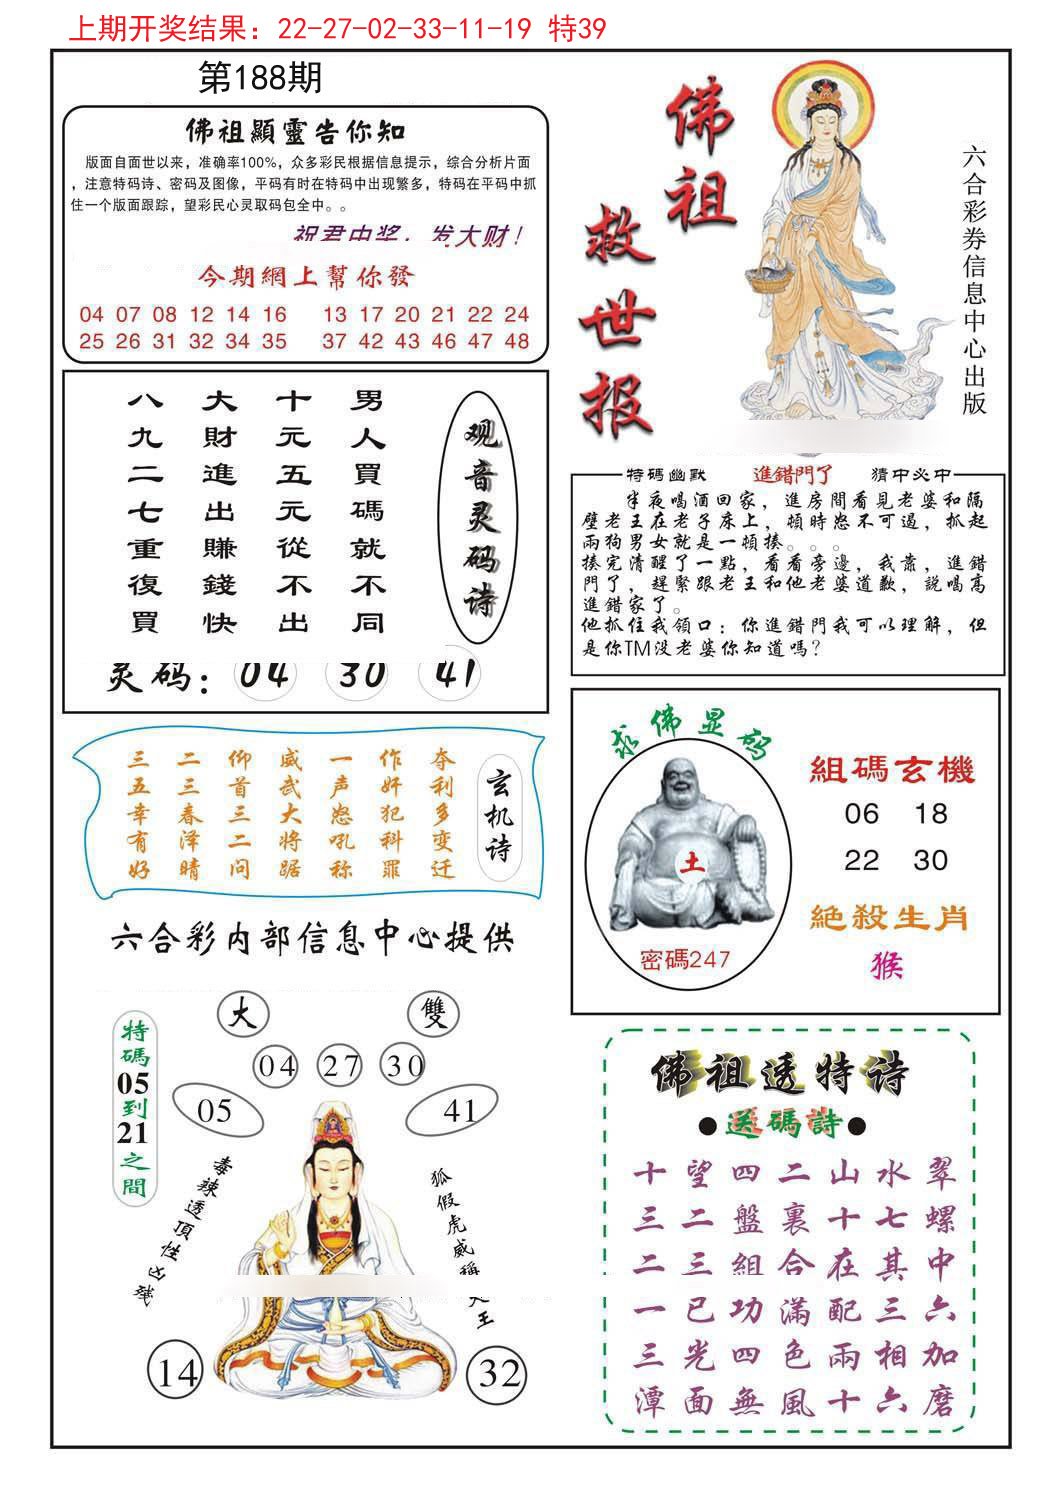 上期开奖结果：22-27-02-33-11-19 特39
第188期
佛祖顯靈告你知
版面自面世以来，准确率100%，众多彩民根据信息提示，综合分析片面
，注意特码诗、密码及图像，平码有时在特码中出现繁多，特码在平码中抓
住一个版面跟踪，望彩民心灵取码包全中。。
祝君中奖，发大财！
今期網上幫你發
04 07 08 12 14 16 13 17 20 21 22 24
25 26 31 32 34 35 37 42 43 46 47 48
佛祖
救世报
六合彩券信息中心出版
观音灵码诗
男人買碼就不同
十元五元從不出
大財進出賺錢快
八九二七重復買
灵码：04 30 41
特碼幽默 進錯門了 猜中必中
半夜喝酒回家，進房間看見老婆和隔
壁老王在老子床上，頓時怒不可遏，抓起
兩狗男女就是一頓揍。。。
揍完清醒了一點，看看旁邊，我靠，進錯
門了，趕緊跟老王和他老婆道歉，説喝高
進錯家了。
他抓住我領口：你進錯門我可以理解，但
是你TM没老婆你知道嗎？
玄机诗
夺利多变迁
作奸犯科罪
一声怒吼称
威武大将踞
仰首三二问
二三春泽晴
三五幸有好
六合彩内部信息中心提供
求佛显码
土
密碼247
組碼玄機
06 18
22 30
絕殺生肖
猴
特碼05到21之間
大 雙
04 27 30
05 41
毒辣透頂性凶残
狐假虎威稱大王
14 32
佛祖透特诗
●送碼詩●
十望四二山水翠
三二盤裏十七螺
二三組合在其中
一已功滿配三六
三光四色兩相加
潭面無風十六磨